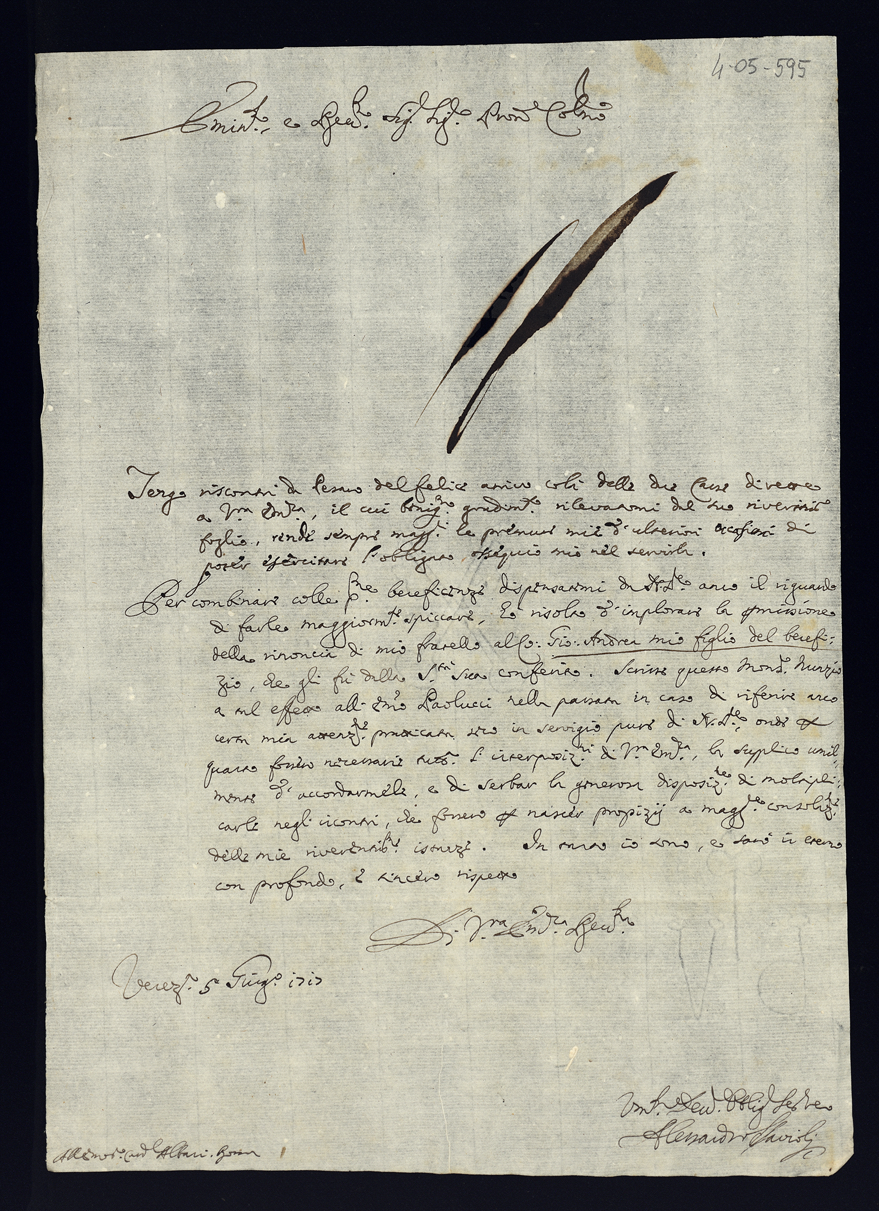 4-05-595
Emin.mo, e Rev.mo Sig.r Sig.r Pron.e Col.mo
Tengo riscontri da Pesaro del felice arrivo colà delle due Casse dirette
a V.ra Em.za, il cui benig.mo gradim.to rilevatomi dal suo riveritiss.o
foglio, rende sempre magg.ri le premure mie d'ulteriori occasioni di
poter esercitare l'obligato ossequio mio nel servirla.
Per combinare colle beneficenze dispensatemi da N. S.re anco il riguardo
di farle maggiorm.te spiccare, ho risolto d'implorare la permissione
della rinoncia di mio fratello al Co: Gio: Andrea mio figlio del benefi:
zio, che gli fù dalla S.tà Sua conferito. Scrisse questo Mons.r Nunzio
a tal effetto all' Em.o Paolucci nella passata in caso di riferire anco
certa mia attenz.ne praticata in servigio pure di N. S.re, onde
quanto fosse necessaria l'interposiz.ne di V.ra Em.za, la supplico umil:
mente d'accordarmela, e di serbar la generosa disposiz.ne di moltipli:
carla negli incontri, che fossero per nascer propizij a magg.re consolaz.ne
delle mie riverentiss.e istanze. In tanto io sono, e sarò in eterno
con profondo, e sincero rispetto
Di V.ra Em.za Rev.ma
Venez.a 5 Giug.o 1717
Um.o Dev.o Oblig.o Ser.re
Alessandro
All'Em.o Card. Albani. Roma